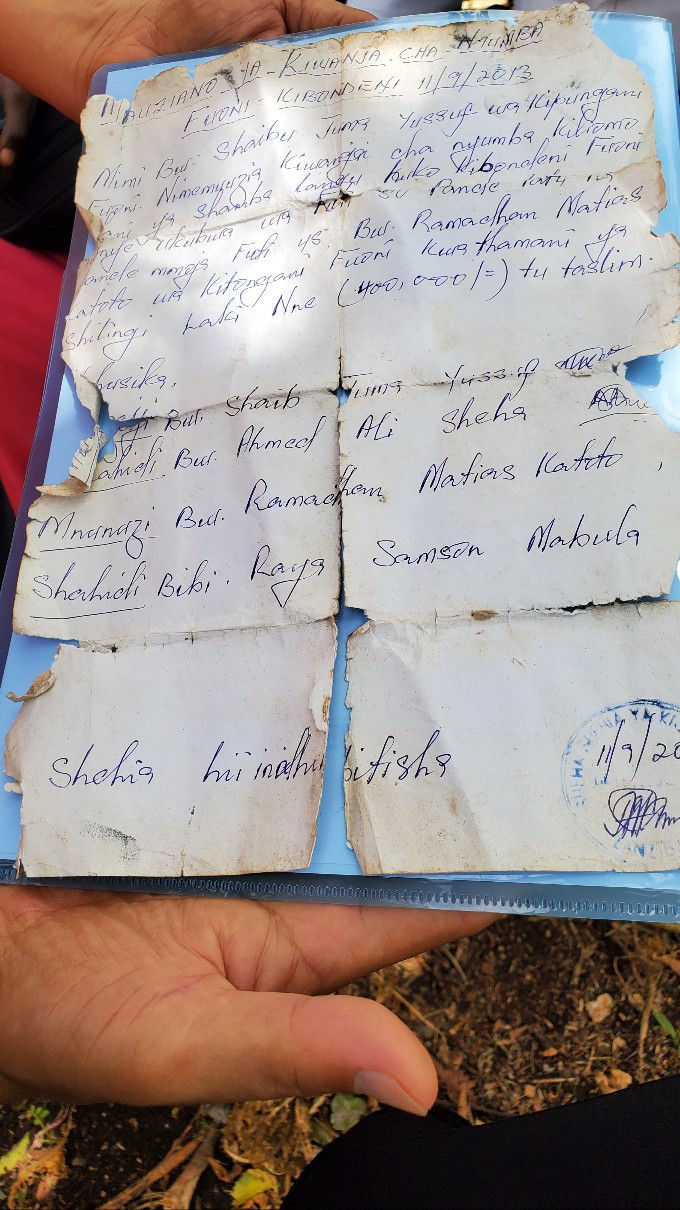 MAUZIANO YA KIWANJA CHA NYUMBA
FUONI - KIBONDENI 11/9/2013
Mimi Bw. Shaibu Juma Yussuf wa Kipungani
Fuoni. Nimemuuzia Kiwanja cha nyumba kiliomo
ya shamba langu huko Kibondeni Fuoni
ukubwa wa Futi 50 Pande tatu na
mmoja Futi 45. Bw. Ramadhan Matias
Katoto wa Kitongani Fuoni Kwa thamani ya
Shilingi Laki Nne (400,000/=) tu taslim.
Bw. Shaib Juma Yussuf
Shahidi Bw. Ahmed Ali Sheha
Mnunuzi Bw. Ramadhan Matias Katoto,
Shahidi Bibi. Raya Samson Mabula
Shehia hii inadhibitisha
11/9/20